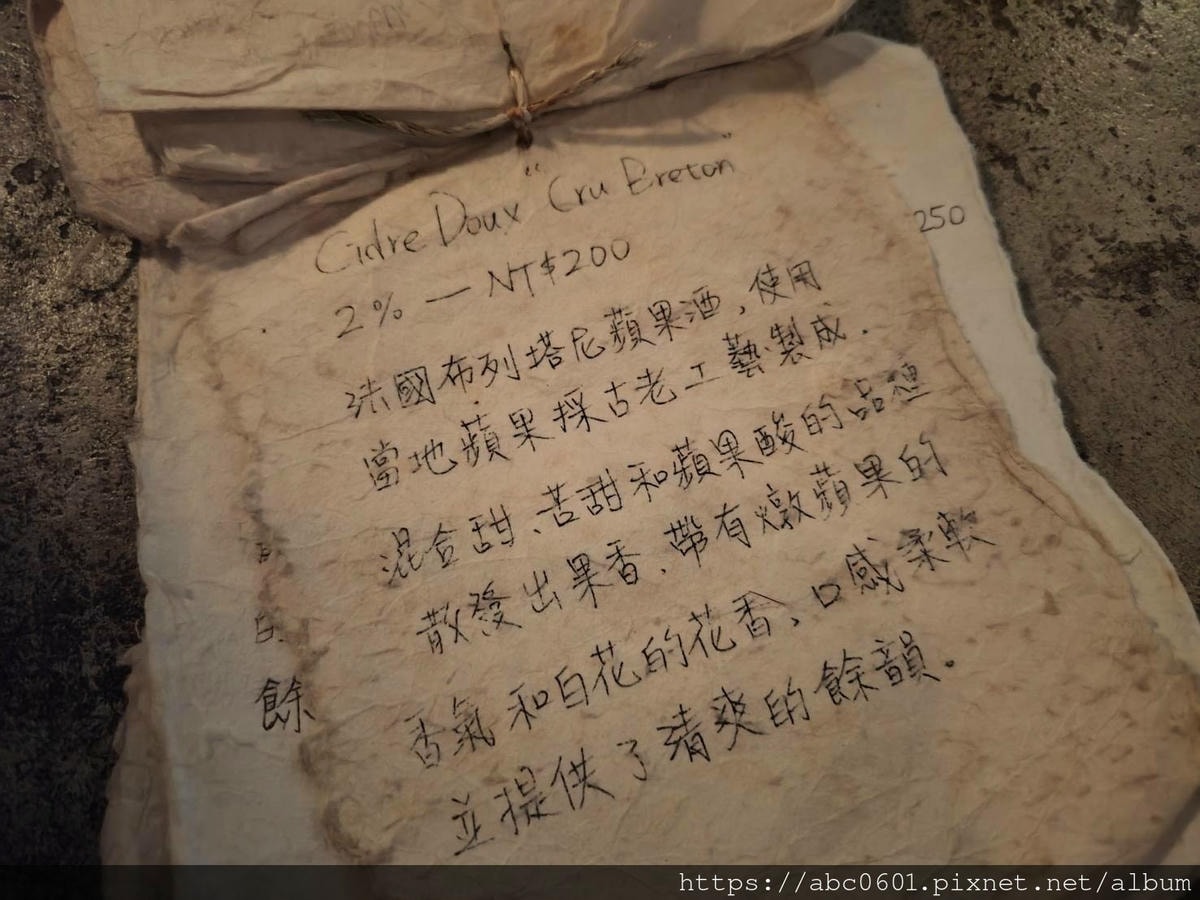 Cidre Doux "Cru Breton"
2% — NT$200
250
法國布列塔尼蘋果酒，使用
當地蘋果採古老工藝製成.
混合甜、苦甜和蘋果酸的品種
散發出果香.帶有燉蘋果的
香氣和白花的花香、口感柔軟
並提供了清爽的餘韻。
餘
https://abc0601.pixnet.net/album